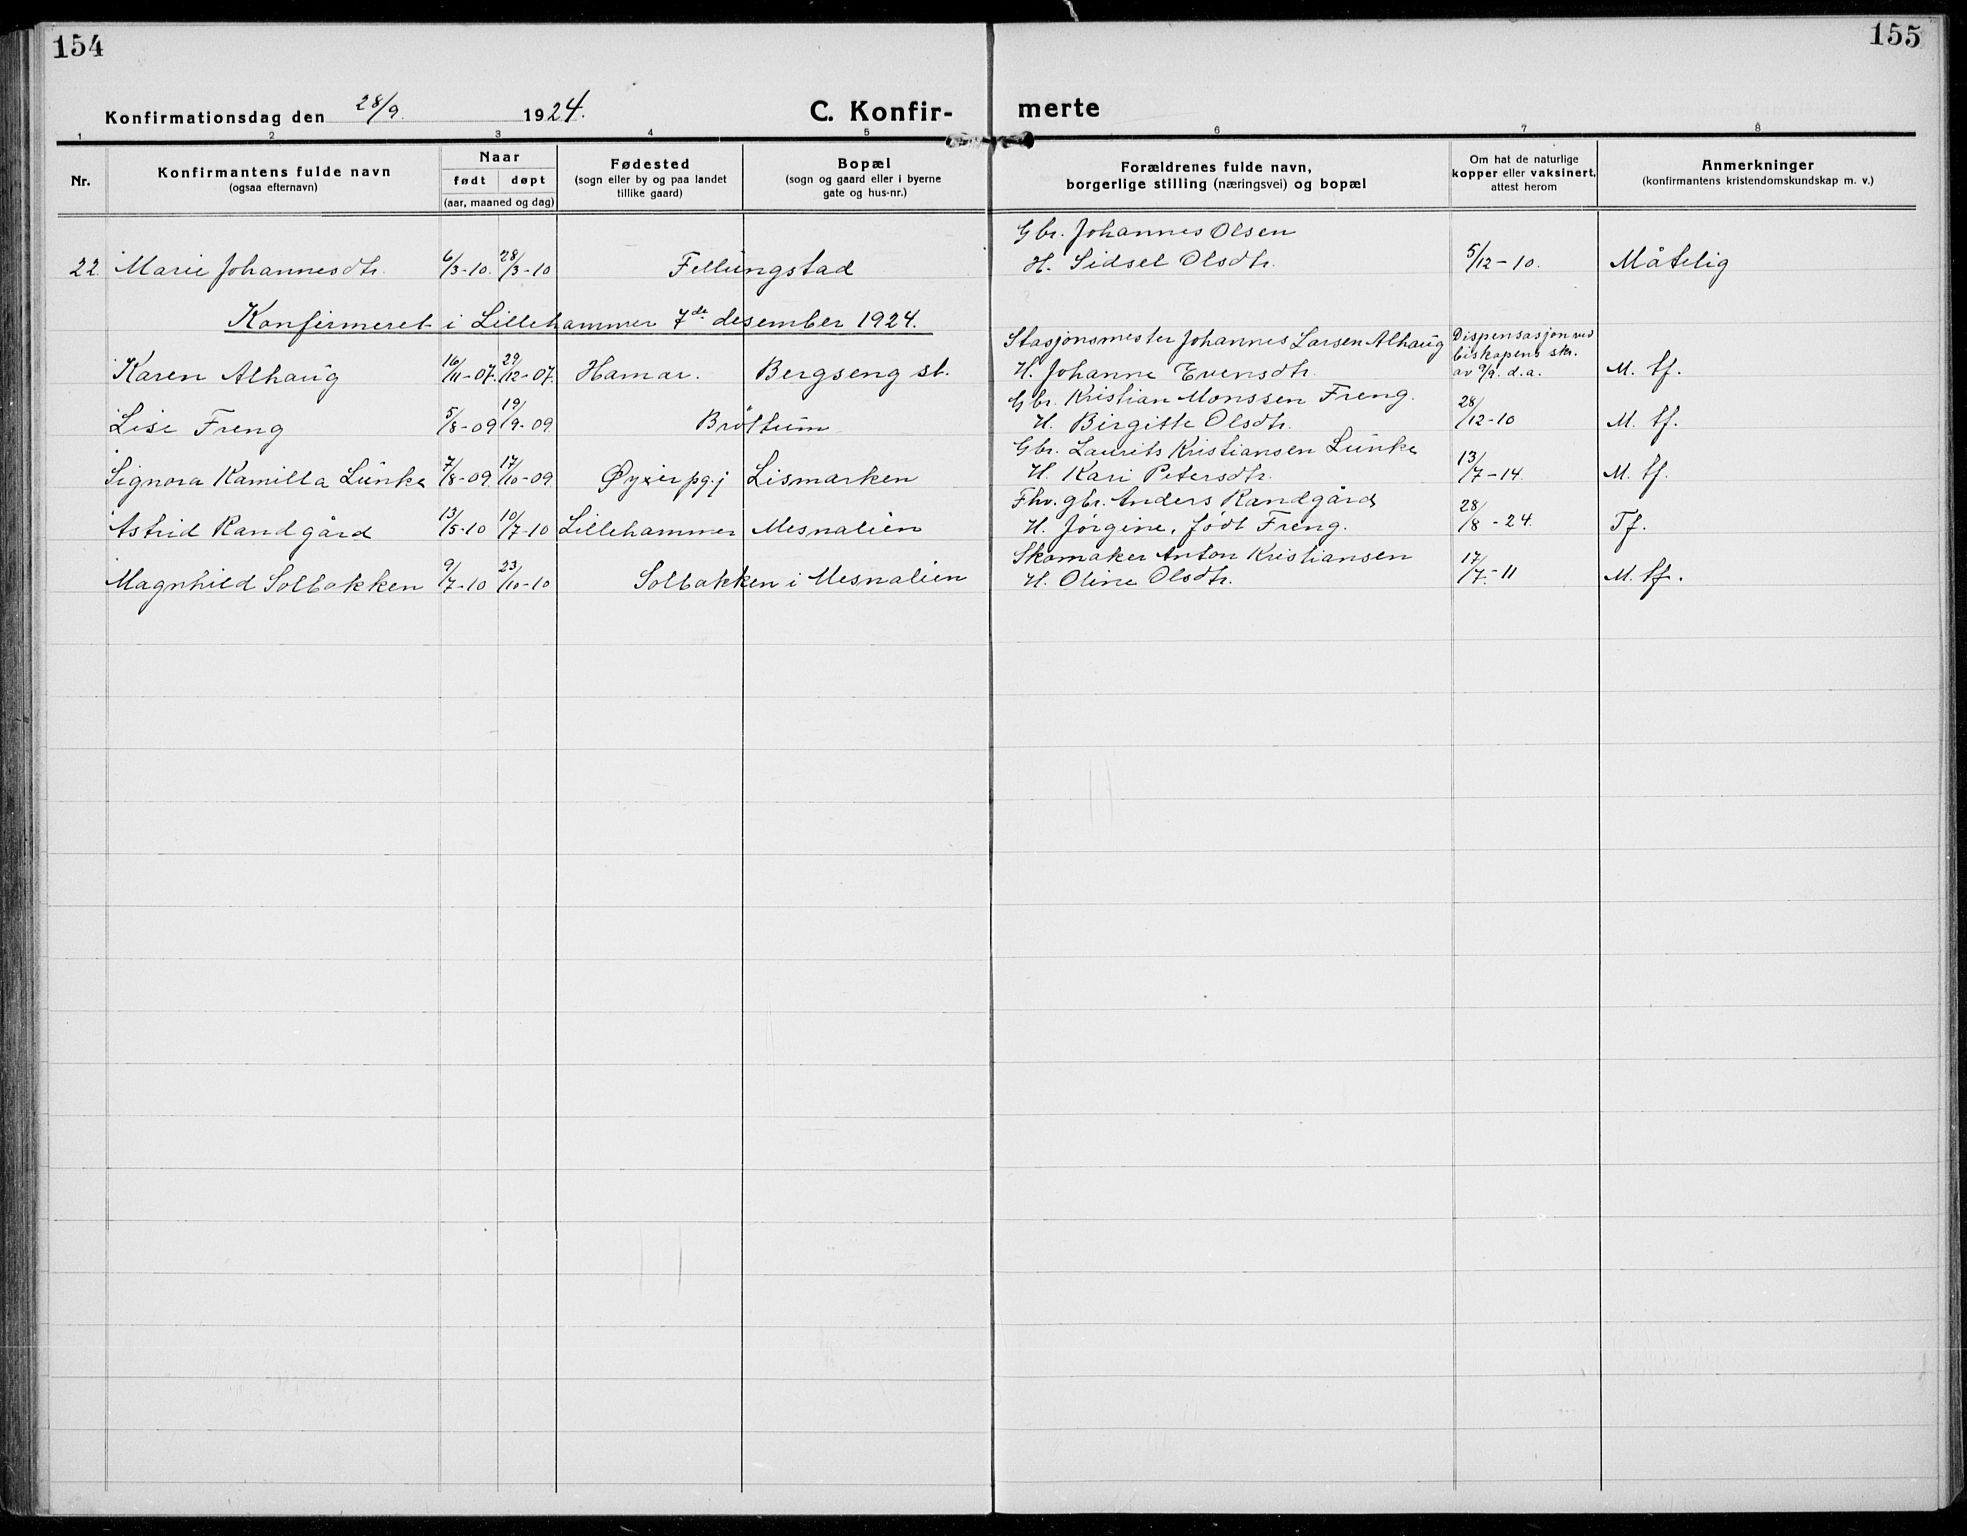 154
155
Konfirmationsdag den 28/9 1924.
C. Konfir- merte
1 2 3 4 5 6 7 8
Nr.
Konfirmantens fulde navn
(ogsaa efternavn)
Naar
født døpt
(aar, maaned og dag)
Fødested
(sogn eller by og paa landet
tillike gaard)
Bopæl
(sogn og gaard eller i byerne
gate og hus-nr.)
Forældrenes fulde navn,
borgerlige stilling (næringsvei) og bopæl
Om hat de naturlige
kopper eller vaksinert,
attest herom
Anmerkninger
(konfirmantens kristendomskundskap m. v.)
Gbr. Johannes Olsen
22 Marie Johannesdtr. 6/3-10. 28/3-10 Fellungstad H. Sidsel Olsdtr. 5/12-10. Måtelig
Konfirmeret i Lillehammer 7de desember 1924.
Stasjonsmester Johannes Larsen Alhaug Dispensasjon ved
biskopens skr.
Karen Alhaug 16/11-07. 29/12-07. Hamar. Bergseng st. H. Johanne Evensdtr. av 9/9. d.a. M. tf.
Gbr. Kristian Monssen Freng.
Lise Freng 5/8-09 19/9-09. Brøttum H. Birgitte Olsdtr. 28/12-10 M. tf.
Gbr. Laurits Kristiansen Lunke
Signora Kamilla Lunke 7/8-09. 17/10-09. Øyer pgj Lismarken H. Kari Petersdtr. 13/7-14. M. tf.
Fhv. gbr. Anders Randgård
Astrid Randgård 13/5-10 10/7-10 Lillehammer Mesnalien H. Jørgine, født Freng. 28/8-24. Tf.
Skomaker Anton Kristiansen
Magnhild Solbakken 9/7-10 23/10-10 Solbakken i Mesnalien H. Oline Olsdtr. 17/7-11 M. tf.